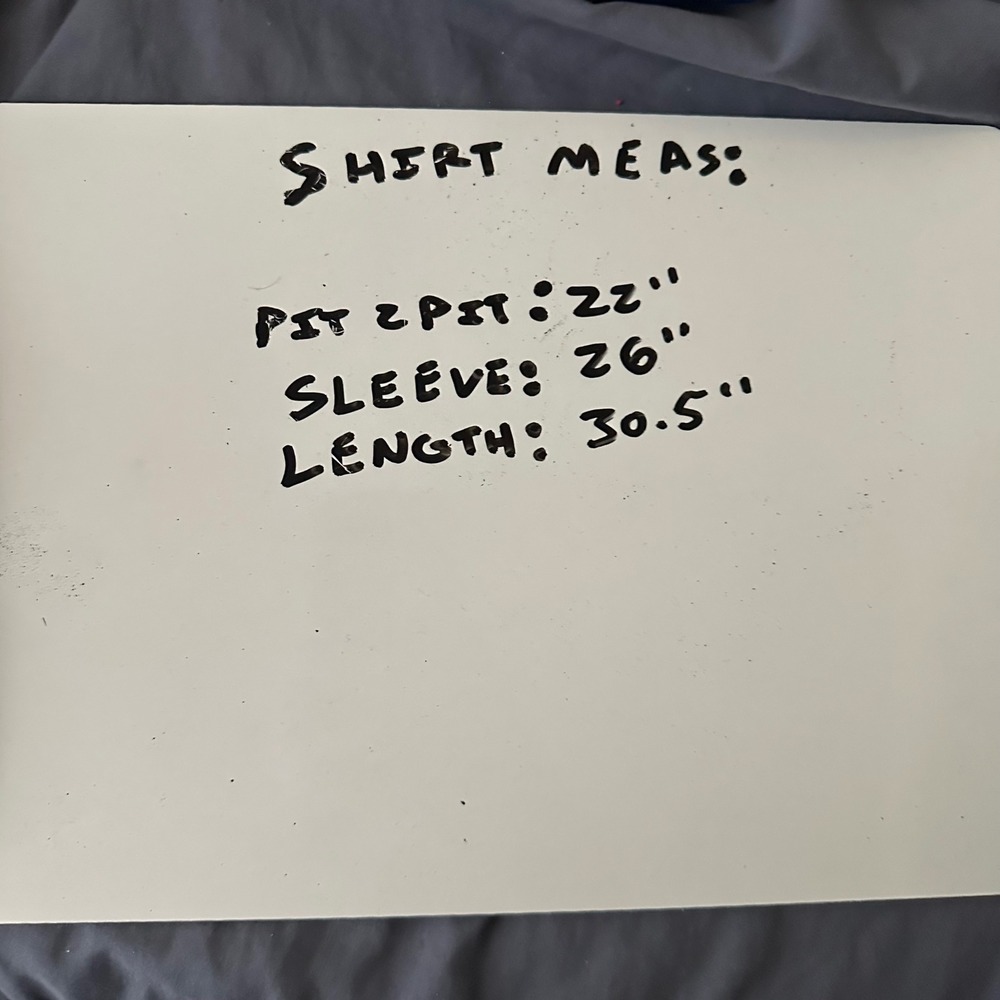 SHIRT MEAS:
PIT 2 PIT: 22"
SLEEVE: 26"
LENGTH: 30.5"